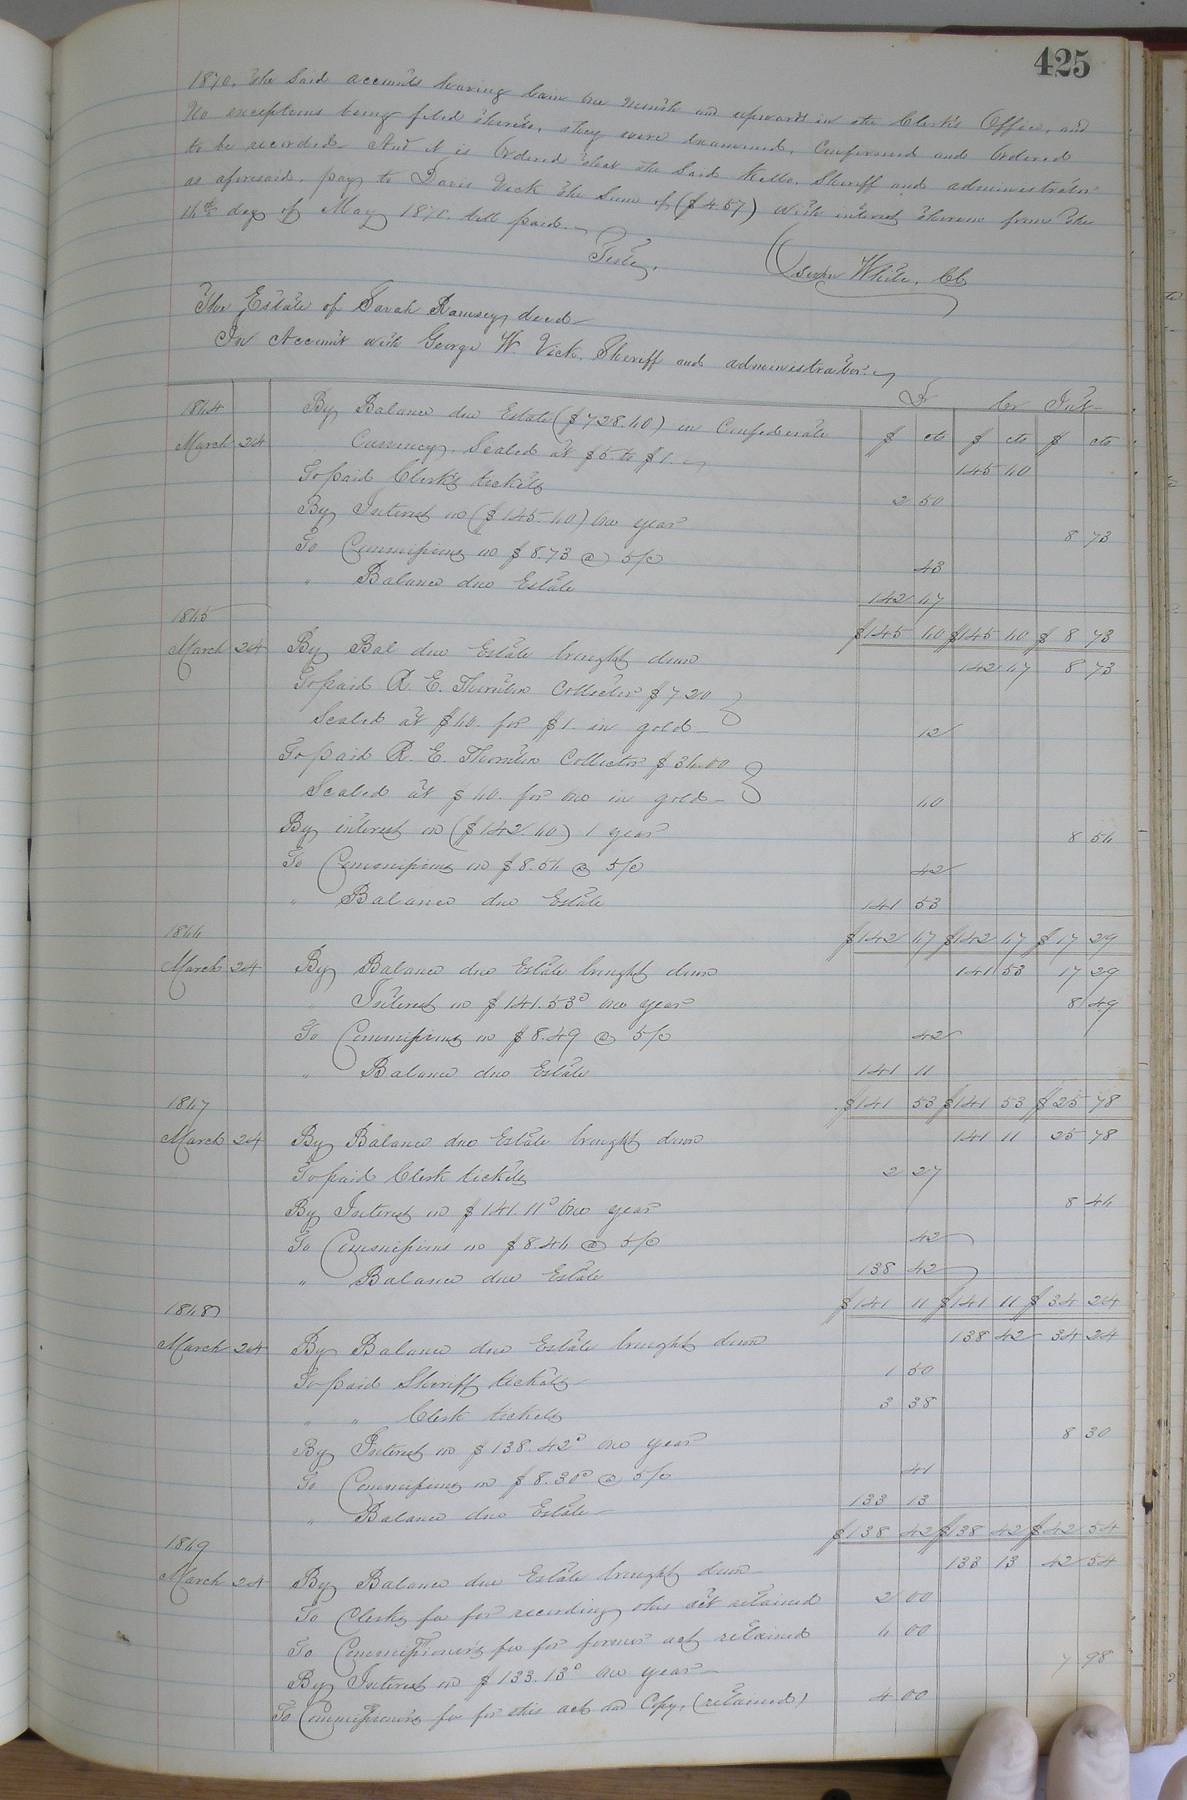 425
1870. The said accounts having lain one month and upwards in the Clerk's Office, and
No exceptions being filed thereto, they were examined, Confirmed and Ordered
to be recorded. And it is Ordered that the said Kello, Sheriff and administrator
as aforesaid, pay to Davis Vick the Sum of ($4.57) with interest thereon from the
16th day of May 1870. till paid.
Teste, White, Clk
The Estate of Sarah Ramsey, decd
In Account with George W. Vick, Sheriff and administrator.
Dr Cr Int
1864 By Balance due Estate ($728.60) in Confederate $ cts $ cts $ cts
March 24 Currency. Scaled at $5 to $1. 145 60
To paid Clerk's tickets 2 50
By Interest on ($145.60) One year 8 73
To Commissions on $8.73 @ 5/c 43
" Balance due Estate 142 67
1865 $145 60 $145 60 $8 73
March 24 By Bal due Estate brought down 142 67 8 73
To paid R. E. Thornton Collector $7 20
Scaled at $60. for $1. in gold 12
To paid R. E. Thornton Collector $36.00
Scaled at $60. for one in gold 60
By interest on ($142.60) 1 year 8 56
To Commissions on $8.56 @ 5/c 42
" Balance due Estate 141 53
1866 $142 67 $142 67 $17 29
March 24 By Balance due Estate brought down 141 53 17 29
Interest on $141.53c one year 8 49
To Commissions on $8.49 @ 5/c 42
" Balance due Estate 141 11
1867 $141 53 $141 53 $25 78
March 24 By Balance due Estate brought down 141 11 25 78
To paid Clerk tickets 2 27
By Interest on $141.11c One year 8 46
To Commissions on $8.46 @ 5/c 42
" Balance due Estate 138 42
1868 $141 11 $141 11 $34 24
March 24 By Balance due Estate brought down 138 42 34 24
To paid Sheriff tickets 1 50
" " Clerk tickets 3 38
By Interest on $138.42c one year 8 30
To Commissions on $8.30c @ 5/c 41
" Balance due Estate 133 13
1869 $138 42 $138 42 $42 54
March 24 By Balance due Estate brought down 133 13 42 54
To Clerks fee for recording this act retained 2 00
To Commissioner's fee for former act retained 6 00
By Interest on $133.13c one year 7 98
To Commissioner's fee for this act and Copy, (retained) 4 00